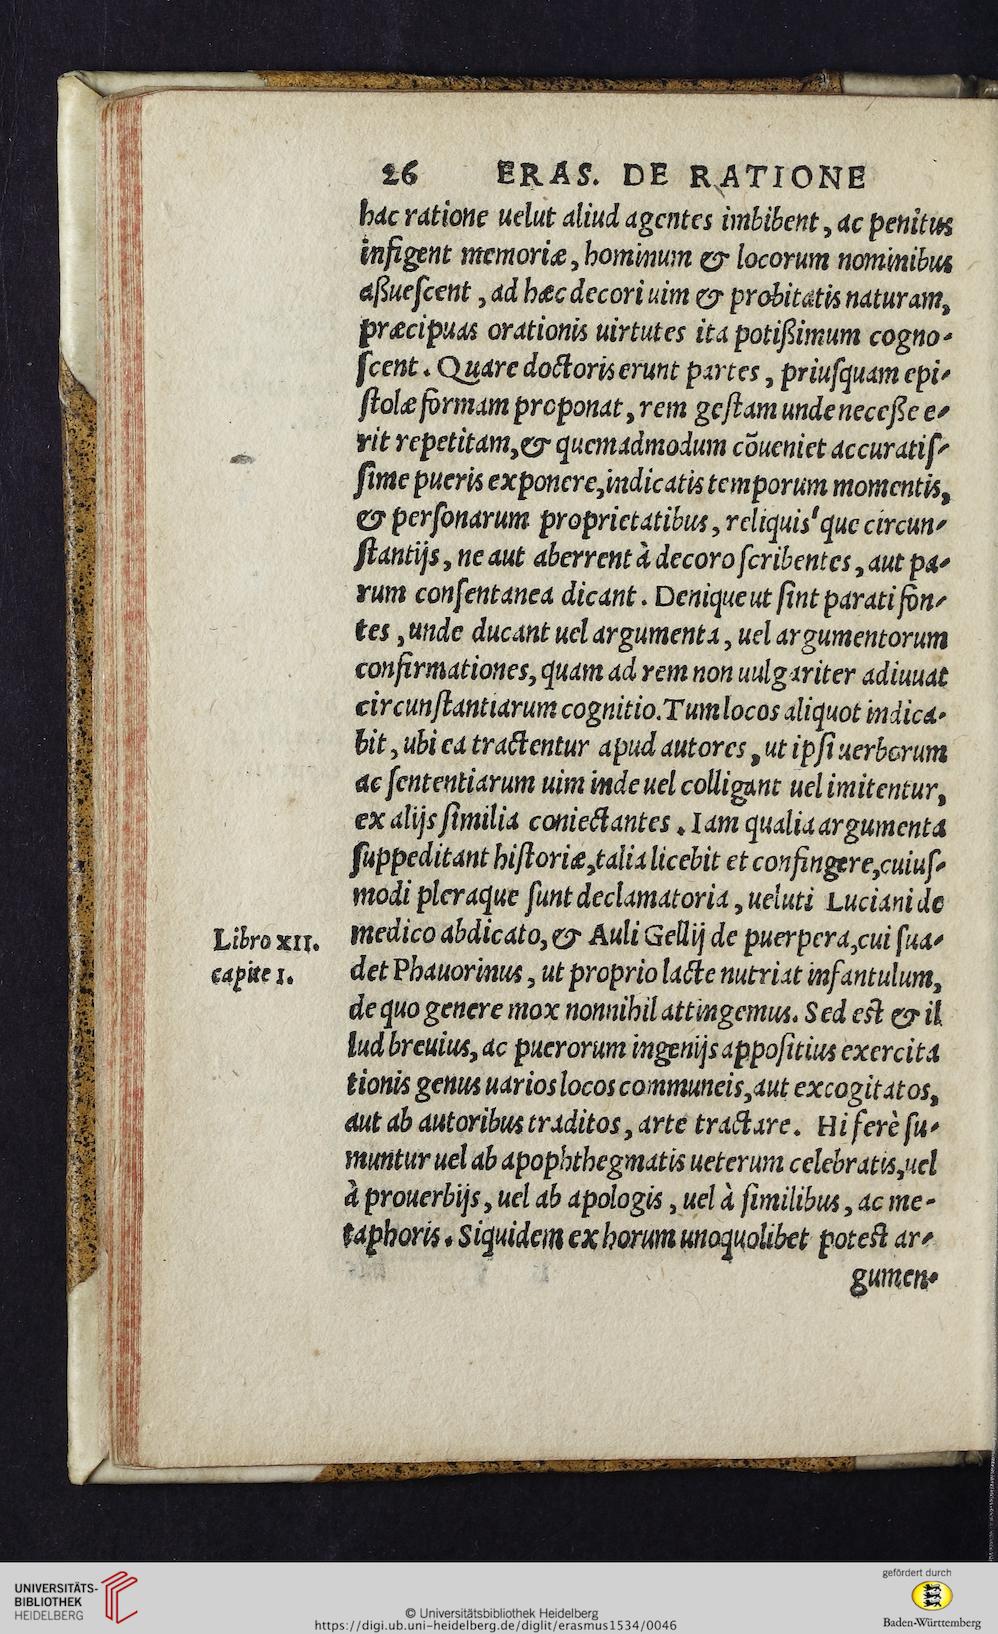 26 ERAS. DE RATIONE
hac ratione uelut aliud agentes imbibent, ac penitus
infigent memoriæ, hominum & locorum nominibus
aßueſcent, ad hæc decori uim & probitatis naturam,
præcipuas orationis uirtutes ita potißimum cogno-
ſcent. Quare doctoris erunt partes, priuſquam epi-
ſtolæ formam proponat, rem geſtam unde neceſſe e-
rit repetitam, & quemadmodum cõueniet accuratiſ-
ſime pueris exponere, indicatis temporum momentis,
& perſonarum proprietatibus, reliquis'que circun-
ſtantijs, ne aut aberrent à decoro ſcribentes, aut pa-
rum conſentanea dicant. Denique ut ſint parati fon-
tes, unde ducant uel argumenta, uel argumentorum
confirmationes, quam ad rem non uulgariter adiuuat
circunſtantiarum cognitio. Tum locos aliquot indica-
bit, ubi ea tractentur apud autores, ut ipſi uerborum
ac ſententiarum uim inde uel colligant uel imitentur,
ex alijs ſimilia coniectantes. Iam qualia argumenta
ſuppeditant hiſtoriæ, talia licebit et confingere, cuiuſ-
modi pleraque ſunt declamatoria, ueluti Luciani de
medico abdicato, & Auli Gellij de puerpera, cui ſua-
det Phauorinus, ut proprio lacte nutriat infantulum,
de quo genere mox nonnihil attingemus. Sed eſt & il
lud breuius, ac puerorum ingenijs appoſitius exercita
tionis genus uarios locos communeis, aut excogitatos,
aut ab autoribus traditos, arte tractare. Hi ferè ſu-
muntur uel ab apophthegmatis ueterum celebratis, uel
à prouerbijs, uel ab apologis, uel à ſimilibus, ac me-
taphoris. Siquidem ex horum unoquolibet poteſt ar-
gumen-
Libro XII.
capite I.
UNIVERSITÄTS-
BIBLIOTHEK
HEIDELBERG
© Universitätsbibliothek Heidelberg
https://digi.ub.uni-heidelberg.de/diglit/erasmus1534/0046
gefördert durch
Baden-Württemberg